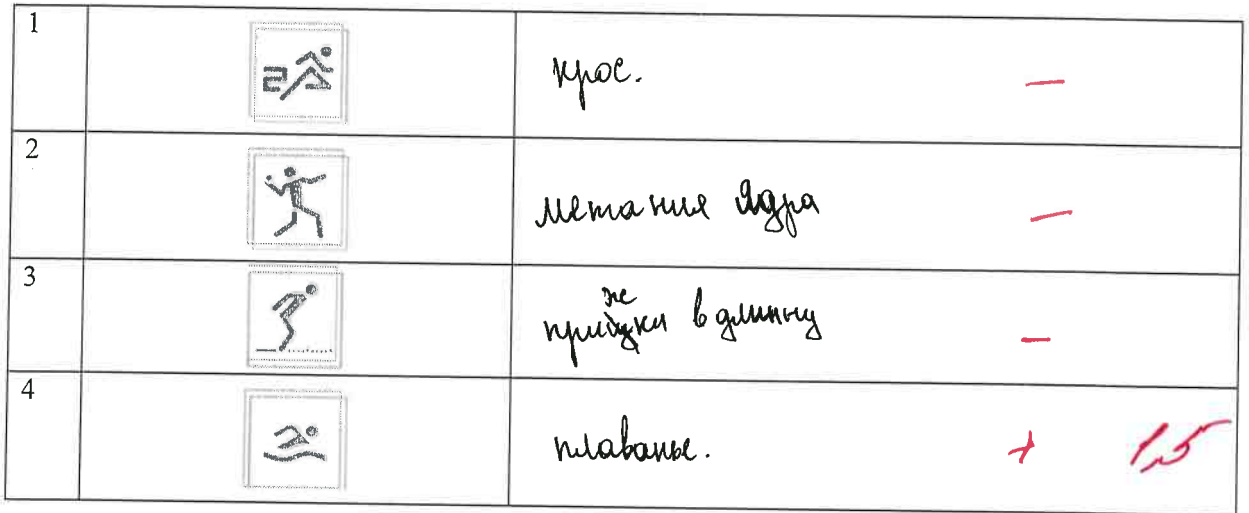 1
крос.
—
2
метания ядра
—
3
прижки в длинну
—
4
плаванье.
+ 1,5